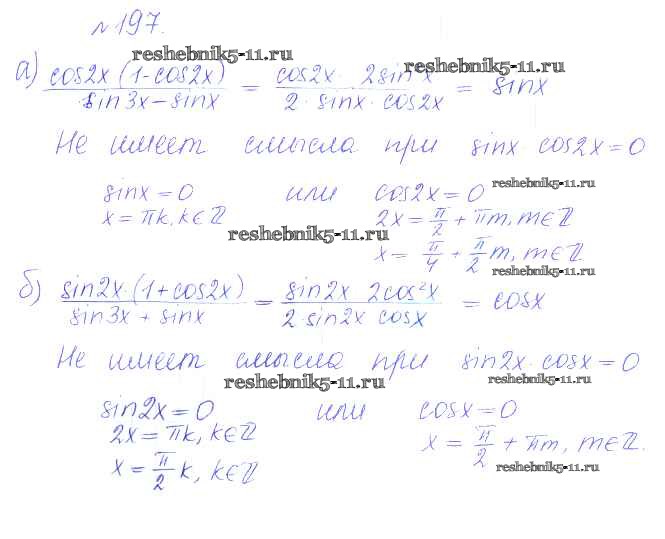 №197.
reshebnik5-11.ru
а) cos2x (1-cos2x) / sin3x - sinx = cos2x · 2sin²x / 2 · sinx · cos2x = sinx
reshebnik5-11.ru
Не имеет смысла при sinx · cos2x = 0
reshebnik5-11.ru
sinx = 0 или cos2x = 0
x = πk, k∈ℤ 2x = π/2 + πm, m∈ℤ
reshebnik5-11.ru
x = π/4 + π/2 m, m∈ℤ.
reshebnik5-11.ru
б) sin2x · (1+cos2x) / sin3x + sinx = sin2x 2cos²x / 2 · sin2x cosx = cosx
Не имеет смысла при sin2x · cosx = 0
reshebnik5-11.ru
reshebnik5-11.ru
sin2x = 0 или cosx = 0
2x = πk, k∈ℤ x = π/2 + πm, m∈ℤ.
x = π/2 k, k∈ℤ
reshebnik5-11.ru